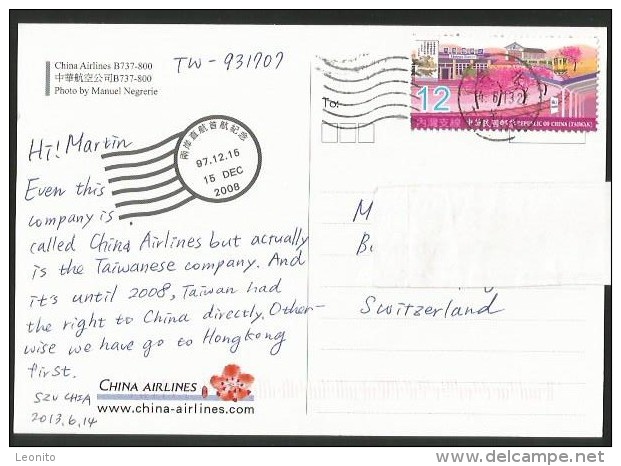 China Airlines B737-800
中華航空公司B737-800
Photo by Manuel Negrerie
TW-931707
Hi! Martin
Even this
company is
called China Airlines but actually
is the Taiwanese company. And
it's until 2008, Taiwan had
the right to China directly. Other-
wise we have go to Hongkong
first.
SZU CHIA
2013.6.14
兩岸直航首航紀念
97.12.15
15 DEC
2008
CHINA AIRLINES
www.china-airlines.com
To:
12
內灣支線
中華民國郵票 REPUBLIC OF CHINA (TAIWAN)
M
B
Switzerland
Leonito
delcampe.net